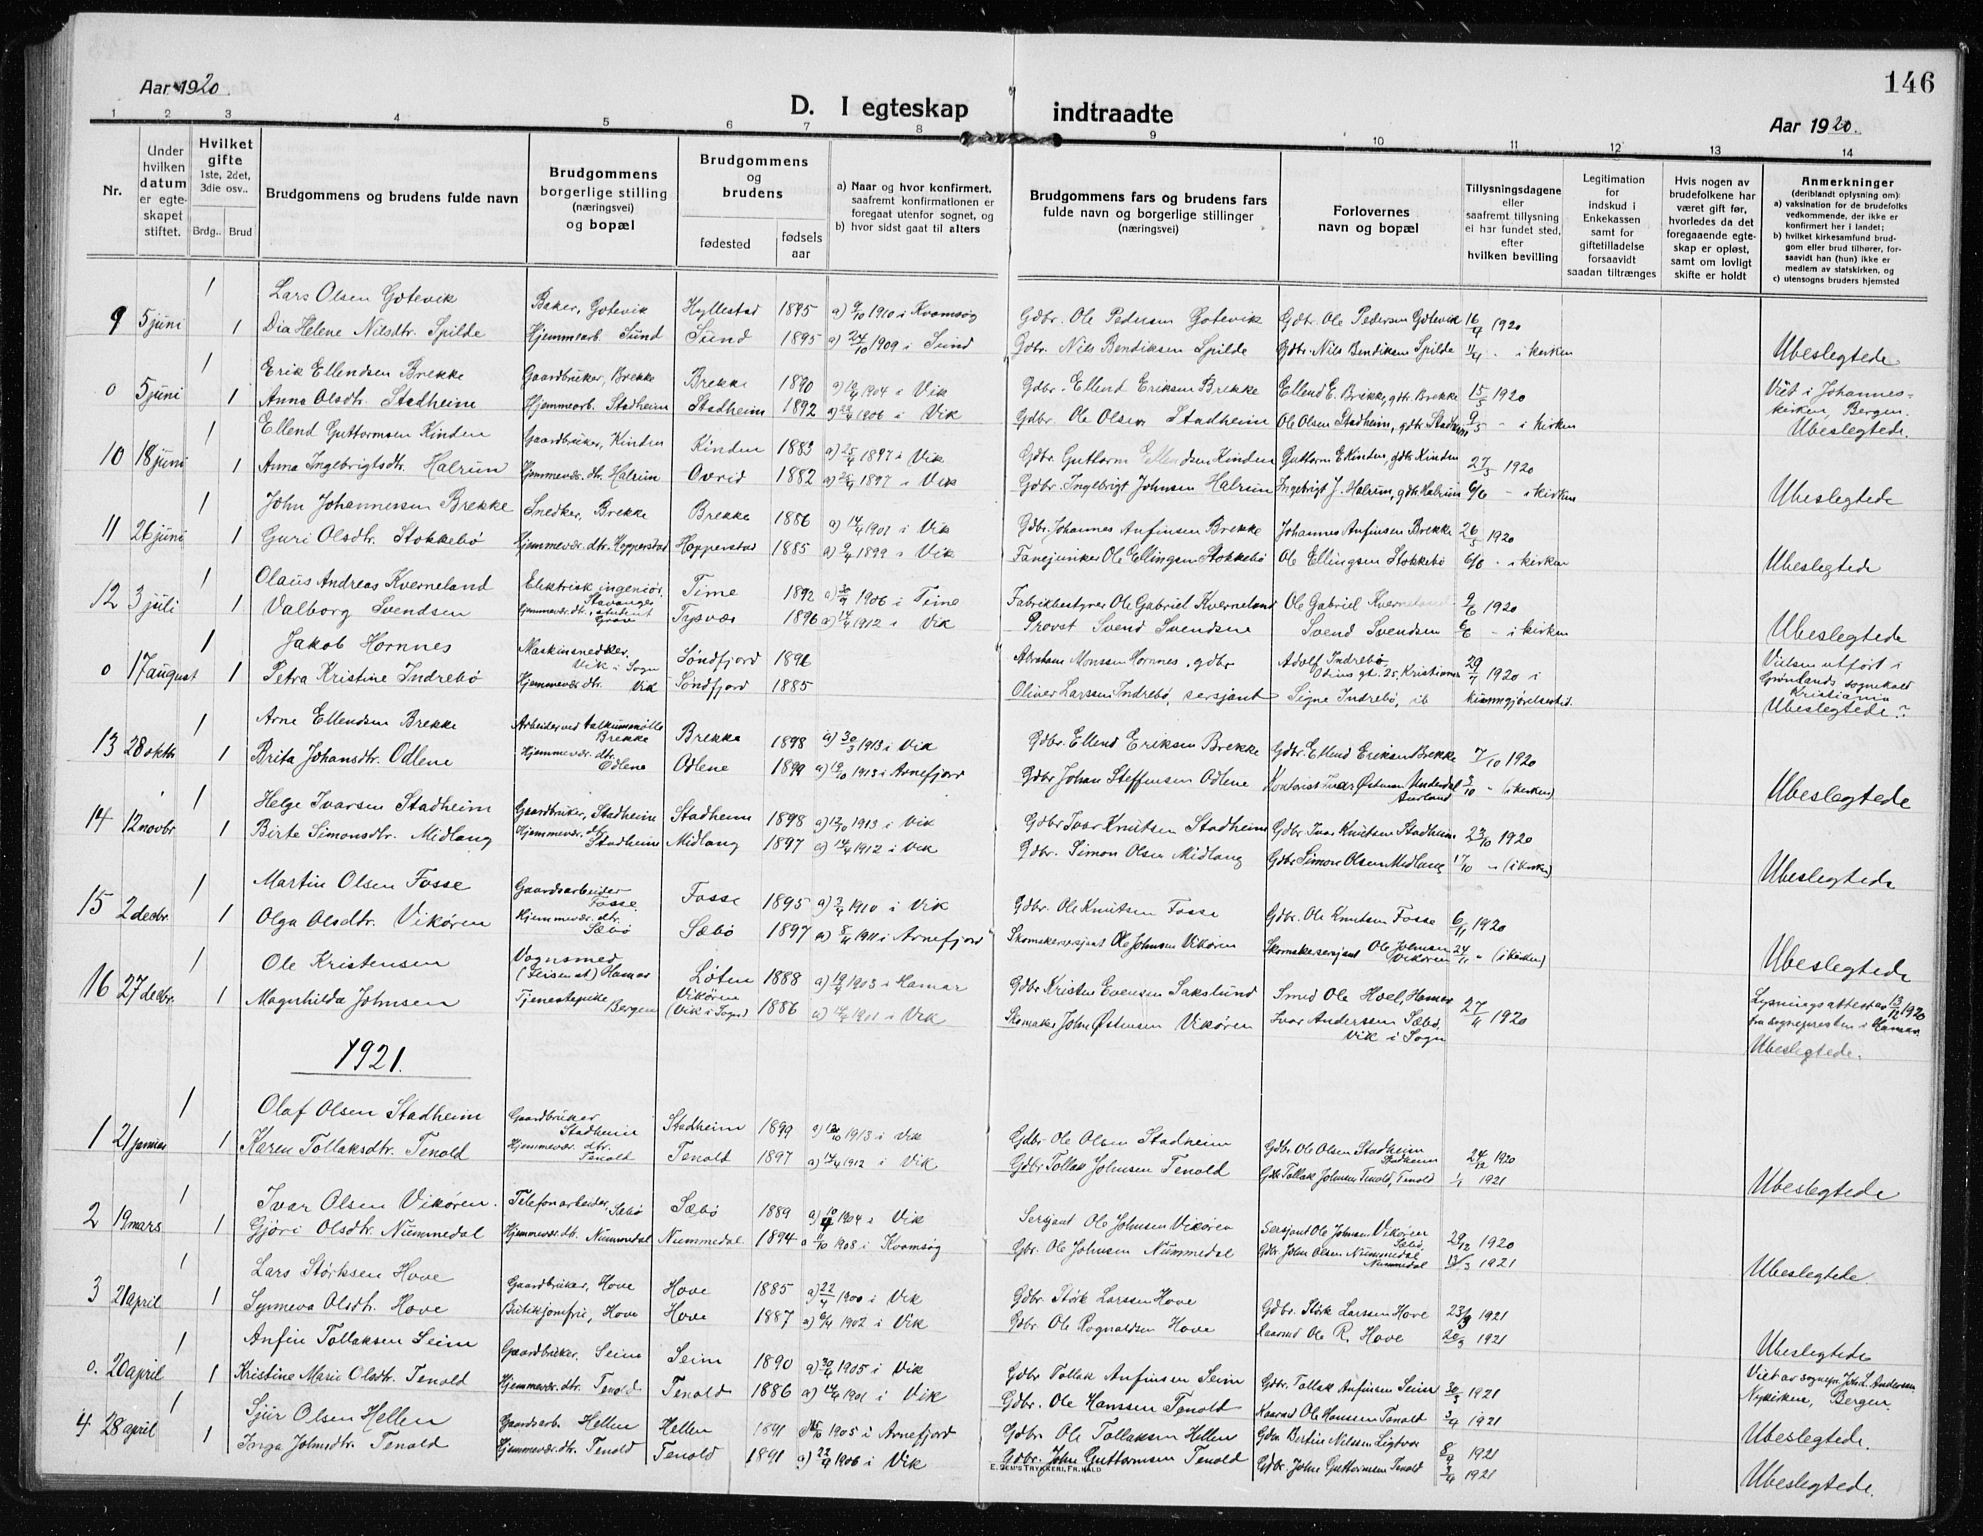 146
Aar 1920.
D. I egteskap indtraadte
Aar 1920.
1 2 3 4 5 6 7 8 9 10 11 12 13 14
Nr.
Under hvilken datum er egteskapet stiftet.
Hvilket gifte 1ste, 2det, 3die osv..
Brdg.. Brud
Brudgommens og brudens fulde navn
Brudgommens borgerlige stilling (næringsvei) og bopæl
Brudgommens og brudens
fødested
fødsels aar
a) Naar og hvor konfirmert, saafremt konfirmationen er foregaat utenfor sognet, og
b) hvor sidst gaat til alters
Brudgommens fars og brudens fars fulde navn og borgerlige stillinger (næringsvei)
Forlovernes navn og bopæl
Tillysningsdagene eller saafremt tillysning ei har fundet sted, efter hvilken bevilling
Legitimation for indskud i Enkekassen samt for giftetilladelse forsaavidt saadan tiltrænges
Hvis nogen av brudefolkene har været gift før, hvorledes da det foregaaende egteskap er opløst, samt om lovligt skifte er holdt
Anmerkninger (deriblandt oplysning om):
a) vaksination for de brudefolks vedkommende, der ikke er konfirmert her i landet;
b) hvilket kirkesamfund brudgom eller brud tilhører, forsaavidt han (hun) ikke er medlem av statskirken, og
c) utensogns bruders hjemsted
1 Lars Olsen Gotevik Baker, Gotevik Hyllestad 1895 1910 i Kvamsøg Gdbr. Ole Pedersen Gotevik Gdbr. Ole Pedersen Gotevik 16/4 1920
9 5 juni 1 Dia Helene Nilsdtr. Spilde Hjemmearb. Sund Sund 1895 a) 24/10 1909 i Sund Gdbr. Nils Bendiksen Spilde Gdbr. Nils Bendiksen Spilde 11/4 - i kirken Ubeslegtede
1 Erik Ellendsen Brekke Gaardbruker, Brekke Brekke 1890 1904 i Vik Gdbr. Ellend Eriksen Brekke Ellend E. Brekke, gdbr. Brekke 15/5 1920 Viet i Johannes-
0 5 juni 1 Anna Olsdtr. Stadheim Hjemmearb. Stadheim Stadheim 1892 1906 i Vik Gdbr. Ole Olsen Stadheim Ole Olsen Stadheim, gdbr Stadheim 9/5 - i kirken kirken, Bergen. Ubeslegtede.
1 Ellend Guttormsen Kinden Gaardbruker, Kinden Kinden 1883 a) 25/4 1897 i Vik Gdbr. Guttorm Ellendsen Kinden Guttorm E Kinden, gdbr. Kinden 27/5 1920
10 18 juni 1 Anna Ingebrigtsdtr. Halrun Hjemmevær. dtr. Halrun Ovrid 1882 a) 25/4 1897 i Vik Gdbr. Ingebrigt Johnsen Halrun Ingebrigt J. Halrun, gdbr. Halrun 6/6 - i kirken Ubeslegtede
1 John Johannessen Brekke Snedker, Brekke Brekke 1886 a) 14/4 1901 i Vik Gdbr. Johannes Anfinsen Brekke Johannes Anfinsen Brekke 26/5 1920
11 26 juni 1 Guri Olsdtr. Stokkebø Hjemmevær. dtr. Hopperstad Hopperstad 1885 1899 i Vik Fanejunker Ole Ellingsen Stokkebø Ole Ellingsen Stokkebø 6/6 - i kirken Ubeslegtede
1 Olaus Andreas Kverneland Elektrisk ingeniør, Stavanger Time 1892 a) 30/9 1906 i Time Fabrikbestyrer Ole Gabriel Kverneland Ole Gabriel Kverneland 9/6 1920
12 3 juli 1 Valborg Svendsen Hjemmevær. dtr., student Grove Tysvær 1896 a) 14/4 1912 i Vik Provst Svend Svendsen Svend Svendsen 6/6 - i kirken Ubeslegtede
1 Jakob Hornnes Maskinsnedker, Vik i Sogn Søndfjord 1896 Abraham Monssen Hornnes, gdbr Adolf Indrebø Odins gt. 25, Kristiania 29/7 1920 i Vielsen utført i
0 17 august 1 Petra Kristine Indrebø Hjemmevær. dtr. Vik Søndfjord 1885 Oliver Larssen Indrebø, sersjant Signe Indrebø, ib kunngjørelsestid. Grønlands sognekald Kristiania Ubeslegtede?
1 Arne Ellendsen Brekke Arbeider ved talkummølle Brekke Brekke 1898 a) 30/3 1913 i Vik Gdbr. Ellend Eriksen Brekke Gdbr. Ellend Eriksen Brekke 7/10 1920
13 28 oktbr 1 Brita Johansdtr. Odlene Hjemmevær. dtr. Odlene Odlene 1899 a) 19/10 1913 i Arnefjord Gdbr Johan Steffensen Odlene Kontorist Ivar Østmon Underdal Aurland 3/10 " (i kirken) Ubeslegtede
1 Helge Ivarsen Stadheim Gaardbruker, Stadheim Stadheim 1898 1913 i Vik Gdbr Ivar Knutsen Stadheim Gdbr Ivar Knutsen Stadheim 23/10 1920
14 12 novbr 1 Birte Simonsdtr. Midlang Hjemmevær. dtr. Stadheim Midlang 1897 a) 14/4 1912 i Vik Gdbr. Simon Olsen Midlang Gdbr Simon Olsen Midlang 17/10 " (i kirken) Ubeslegtede
1 Martin Olsen Fosse Gaardsarbeider Fosse Fosse 1895 1910 i Vik Gdbr. Ole Knutsen Fosse Gdbr. Ole Knutsen Fosse 6/11 1920
15 2 decbr. 1 Olga Olsdtr. Vikøren Hjemmevær. dtr. Sæbø Sæbø 1897 a) 8/11 1911 i Arnefjord Skomakersersjant Ole Johnsen Vikøren Skomakersersjant Ole Johnsen Vikøren 24/11 " (i kirken) Ubeslegtede
1 Ole Kristensen Vognsmed Hamar Løten 1888 a) 19/4 1903 i Hamar Gdbr Kristen Evensen Sakslund Smed Ole Hoel, Hamar 27/11 1920 Lysningsattest av 13/12 1920
16 27 decbr. 1 Magnhilda Johnsen Tjenestepike Bergen Vikøren (Vik i Sogn) 1886 a) 14/4 1901 i Vik Skomaker John Østensen Vikøren Ivar Andersen Sæbø, Vik i Sogn fra sognepresten i Hamar. Ubeslegtede.
1921.
1 Olaf Olsen Stadheim Gaardbruker Stadheim Stadheim 1899 1913 i Vik Gdbr. Ole Olsen Stadheim Gdbr. Ole Olsen Stadheim Stadheim 24/12 1920
1 21 januar 1 Karen Tollaksdtr. Tenold Hjemmevær. dtr. Tenold Tenold 1897 a) 14/4 1912 i Vik Gdbr Tollak Johnsen Tenold Gdbr Tollak Johnsen Tenold, Tenold 1/1 1921 Ubeslegtede
1 Ivar Olsen Vikøren. Telefonarbeider, Sæbø Sæbø 1889 a) 10/4 1904 i Vik Sersjant Ole Johnsen Vikøren Sersjant Ole Johnsen Vikøren Sæbø 29/12 1920
2 19 mars 1 Gjøri Olsdtr. Nummedal Hjemmevær. dtr. Nummedal Nummedal 1894 a 11/10 1908 i Kvamsøg Gbr. Ole Johnsen Nummedal Gdbr. John Olsen Nummedal Nummedal 13/3 1921 Ubeslegtede
1 Lars Størksen Hove Gaardbruker, Hove Hove 1885 a) 22/4 1900 i Vik Gdbr. Størk Larssen Hove Gdbr. Størk Larssen Hove 23/3 1921
3 21 april 1 Synneva Olsdtr. Hove Butikjomfru, Hove Hove 1887 a) 6/4 1902 i Vik Gdbr. Ole Rognaldsen Hove Kaarmd Ole R. Hove 20/3 1921 Ubeslegtede
1 Anfin Tollaksen Seim Gaardbruker. Seim Seim 1890 a) 30/4 1905 i Vik Gdbr Tollak Anfinsen Seim Gdbr. Tollak Anfinsen Seim 30/3 1921 Viet av sognepr. Joh. L. Andersen
0. 20 april 1 Kristine Marie Olsdtr. Tenold Hjemmevær. dtr. Tenold Tenold 1886 a) 14/4 1901 i Vik Gdbr. Ole Hanssen Tenold Kaarmd Ole Hanssen Tenold 3/4 1921 Nykirken, Bergen. Ubeslegtede.
1 Sjur Olsen Hellen Gaardsarb. Hellen Hellen 1891 15/10 1905 i Arnefjord Gdbr. Ole Tollaksen Hellen Gdbr Bertin Nilssen Ligtvor 8/4 1921
4 28 april 1 Inga Johnsdtr. Tenold Hjemmevær. dtr. Tenold Tenold 1891 a) 22/4 1906 i Vik Gdbr. John Guttormsen Tenold Gdbr. John Guttormsen Tenold 3/4 1921 Ubeslegtede.
E. SEM'S TRYKKERI, FR.HALD